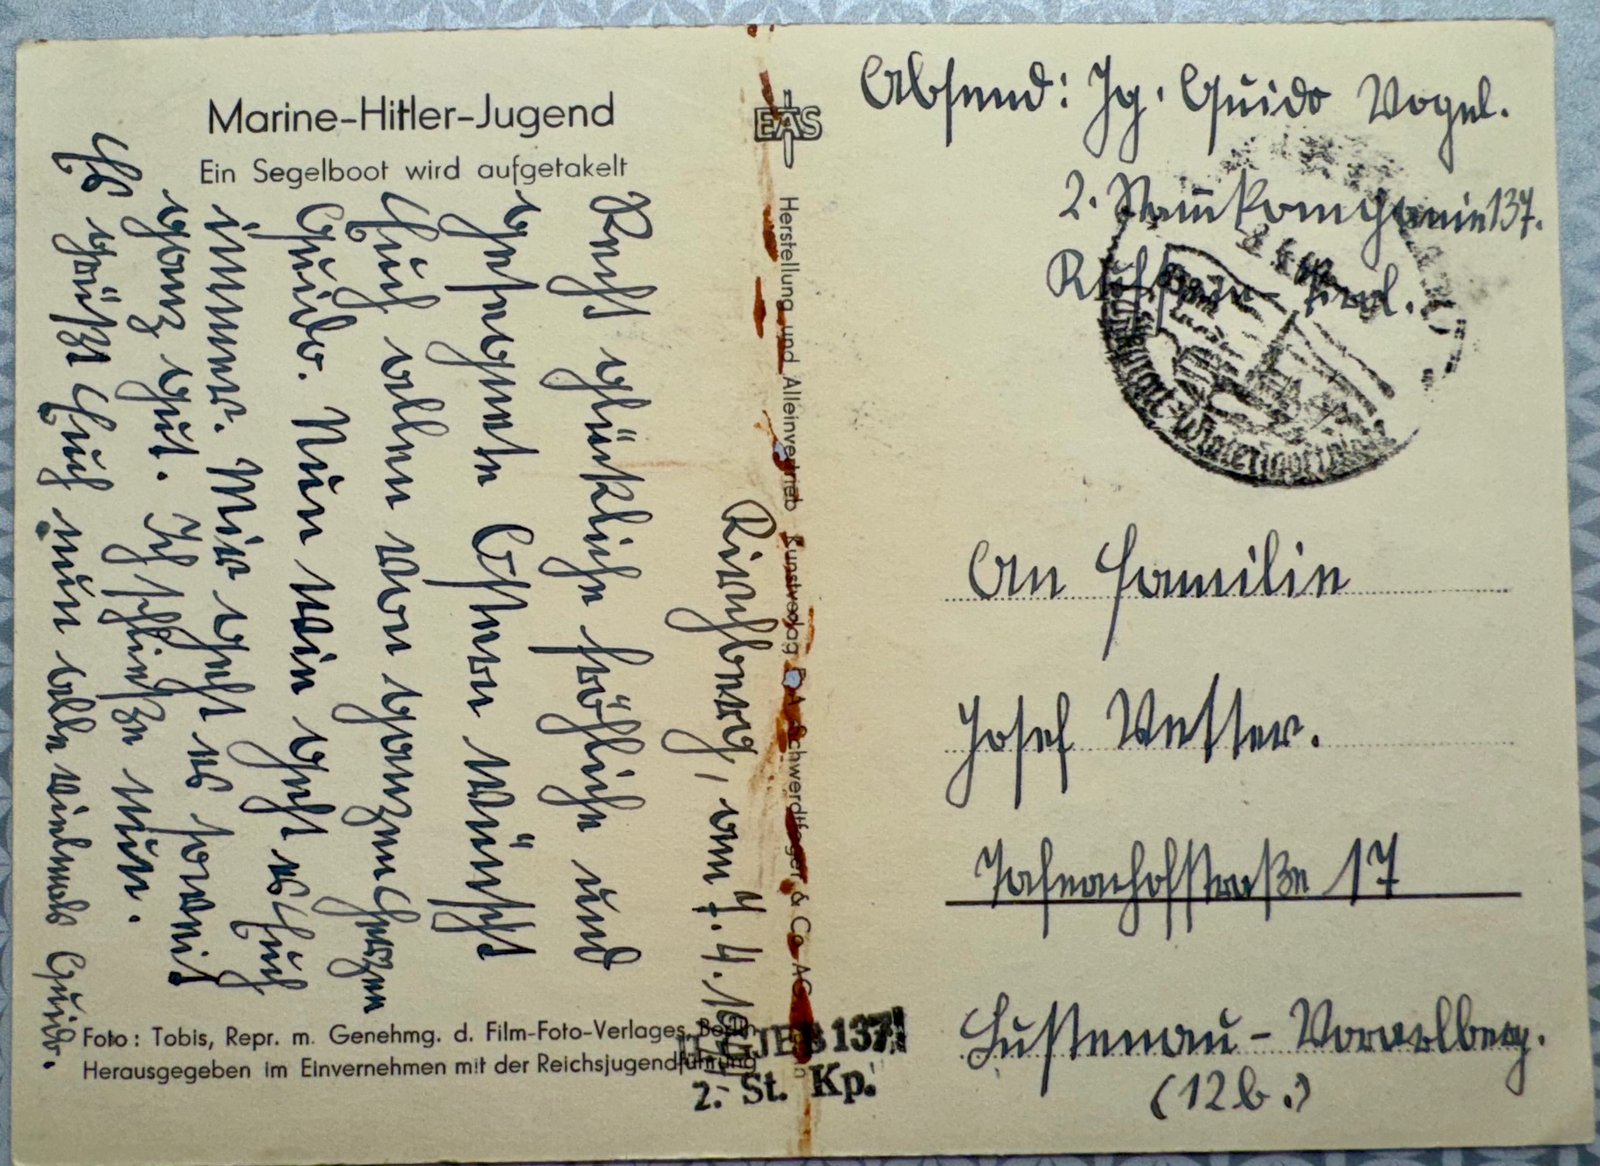 Marine-Hitler-Jugend
Ein Segelboot wird aufgetakelt
Kirchberg, am 7. 4.
Recht glückliche fröhliche und
gesegnete Ostern wünscht
Euch allen von ganzen Herzen
Guido. Nun wie geht es Euch
immer. Mir geht es soweit
ganz gut. Ich schließe nun.
Es grüßt Euch nun alle vielmals Guido.
Foto: Tobis, Repr. m. Genehmg. d. Film-Foto-Verlages, Berlin
Herausgegeben im Einvernehmen mit der Reichsjugendführung
EAS
Herstellung und Alleinvertrieb Kunstverlag E. A. Schwerdtfeger & Co. AG
JEB 137
2. St. Kp.
Absend: Jg. Guido Vogel.
2. Stammkompanie 137.
Kufstein - Tirol.
An Familie
Josef Vetter.
Hofstraße 17
Lustenau - Vorarlberg.
(12b.)